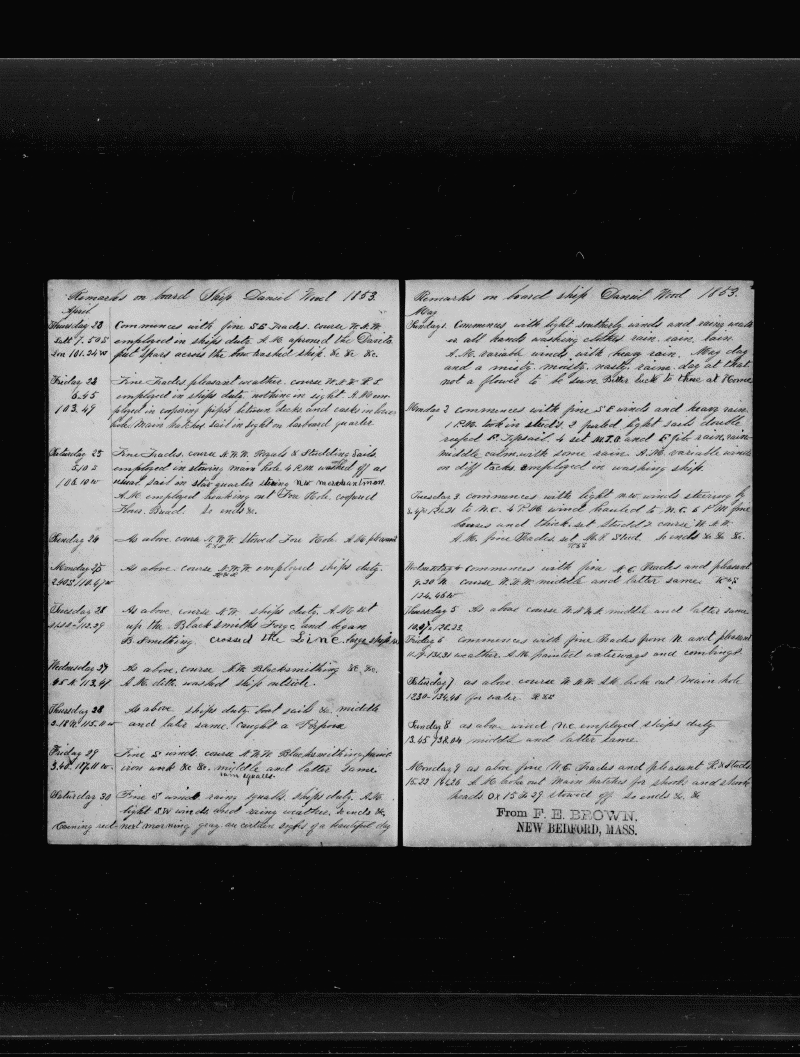 Remarks on board Ship Daniel Wood 1853.
April
Thursday 23 Commences with fine S E Trades. course W.N.W.
Latt 7.50 S employed in ships duty A.M. the
Lon 101.24 W put spars across the bow washed ship. &c &c &c.
Friday 23 Fine Trades pleasant weather. course W.N.W.
6.45 employed in ships duty nothing in sight A.M. em-
103.49 ployed in coopering pipes between decks and casks in lower
hole Main hatches sail in sight on larboard quarter
Saturday 25 Fine Trades. course N.W.W. Royals & Studding Sails
5.10 S employed in stowing main hole 4 P.M. washed off as
106.10 W usual sail in star quarter merchantman
A.M. employed breaking out Fore Hole coopered
Flour. Bread. So ends &c.
Sunday 24 As above course N.W.W. stowed Fore Hole A.M. pleasant
Monday 25 As above. course N.W.W. employed ships duty.
Tuesday 26 As above. course N.W. ships duty. A.M. set
up the Blacksmiths Forge and began
B. Smithing crossed the Line. large ship
Wednesday 27 As above, course N.W. Blacksmithing &c. &c.
A.M. ditto washed ship outside.
Thursday 28 As above ships duty boat sails &c. middle
2.18 N 115.11 W and late same. caught a Porpoise
Friday 29 Fine S winds course N.W.W. Blacksmithing paint
3.40. 117.11 W iron work &c &c. middle and latter same
rain squalls.
Saturday 30 Fine S winds rainy squalls ships duty. A.M.
light S.W. winds and rainy weather. So ends &c.
Evening red next morning gray are certain signs of a beautiful day
Remarks on board ship Daniel Wood 1853.
May
Sunday 1. Commences with light southerly winds and rainy weath
er all hands washing clothes rain. rain. rain.
A.M. variable winds with heavy rain. May day
and a misty, moisty, nasty, rainy day at that
not a flower to be seen. Better luck to those at Home
Monday 2 commences with fine S E winds and heavy rain.
1 P.M. took in studs. 2 furled light sails double
reefed F. Topsail 4 set M.T.G and F jib rain, rain
middle calm with some rain. A.M. variable winds
on diff tacks. employed in washing ship.
Tuesday 3 commences with light N.W. winds steering by
to N.E. 4 P.M. wind hauled to N.E. 6 P.M. fine
breeze and thick. set Studs 2 course W.N.W.
A.M. fine Trades. set Stud. So ends &c &c &c.
Wednesday 4 commences with fine N.E. Trades and pleasant
9.30 N course W.N.W. middle and latter same
124.46 W
Thursday 5 As above course W.N.W. middle and latter same
Friday 6 commences with fine Trades from N. and pleasant
weather. A.M. painted waterways and combings.
Saturday 7 as above course W.N.W. A.M. broke out Main hole
12.30-134.46 for water &c
Sunday 8 as above wind N.E. employed ships duty
13.45 138.04 middle and latter same
Monday 9 as above fine N.E. Trades and pleasant
15.22 A.M. broke out main hatches for shooks and shook
heads stowed off So ends &c. &c
From F. E. BROWN,
NEW BEDFORD, MASS.